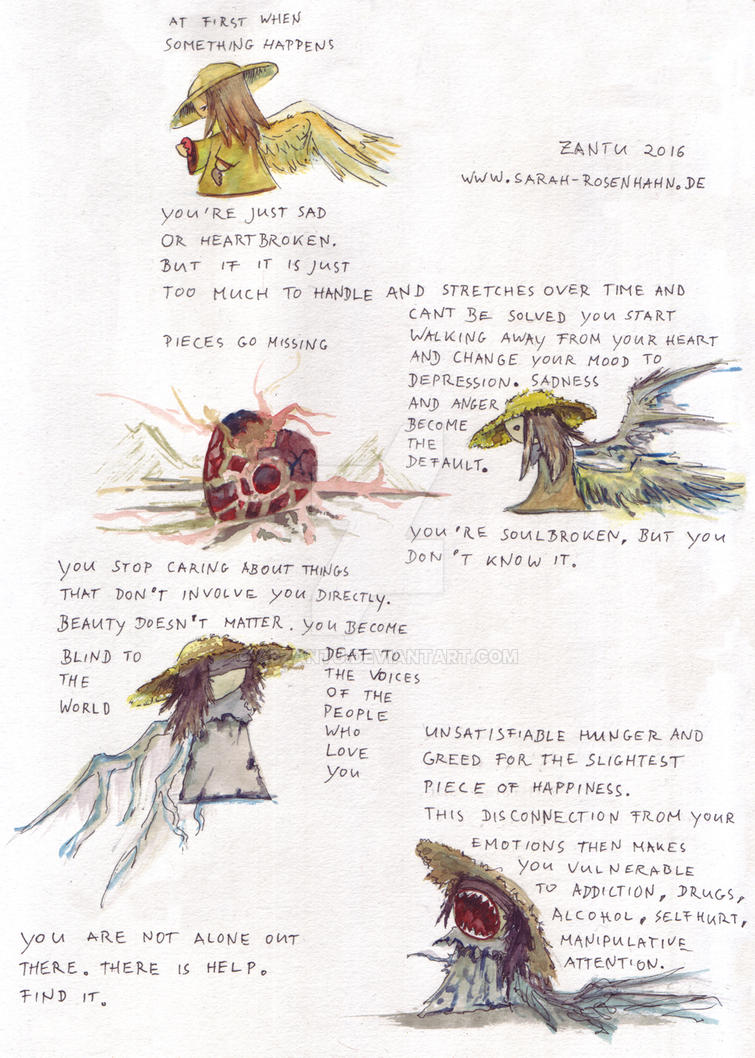 AT FIRST WHEN
SOMETHING HAPPENS
ZANTU 2016
WWW.SARAH-ROSENHAHN.DE
YOU'RE JUST SAD
OR HEARTBROKEN.
BUT IF IT IS JUST
TOO MUCH TO HANDLE AND STRETCHES OVER TIME AND
CANT BE SOLVED YOU START
WALKING AWAY FROM YOUR HEART
AND CHANGE YOUR MOOD TO
DEPRESSION. SADNESS
AND ANGER
BECOME
THE
DEFAULT.
PIECES GO MISSING
YOU'RE SOULBROKEN, BUT YOU
DON'T KNOW IT.
YOU STOP CARING ABOUT THINGS
THAT DON'T INVOLVE YOU DIRECTLY.
BEAUTY DOESN'T MATTER. YOU BECOME
BLIND TO
THE
WORLD
DEAF TO
THE VOICES
OF THE
PEOPLE
WHO
LOVE
YOU
DEVIANTART.COM
UNSATISFIABLE HUNGER AND
GREED FOR THE SLIGHTEST
PIECE OF HAPPINESS.
THIS DISCONNECTION FROM YOUR
EMOTIONS THEN MAKES
YOU VULNERABLE
TO ADDICTION, DRUGS,
ALCOHOL, SELFHURT,
MANIPULATIVE
ATTENTION.
YOU ARE NOT ALONE OUT
THERE. THERE IS HELP.
FIND IT.